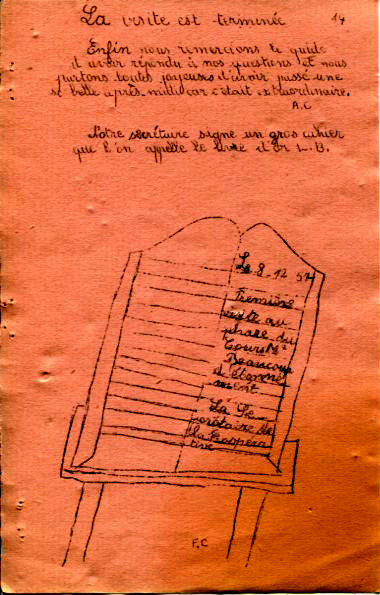 La visite est terminée
14
Enfin nous remercions le guide
d'avoir répondu à nos questions et nous
partons toutes joyeuses d'avoir passé une
si belle après-midi car c'était extraordinaire.
A.C
Notre secrétaire signe un gros cahier
que l'on appelle le livre d'or L.B.
Le 8-12 57
Première
visite au
phare du
Beaucoup
d'étonne
ment
La Se-
crétaire de
la Coopéra
tive
F.C